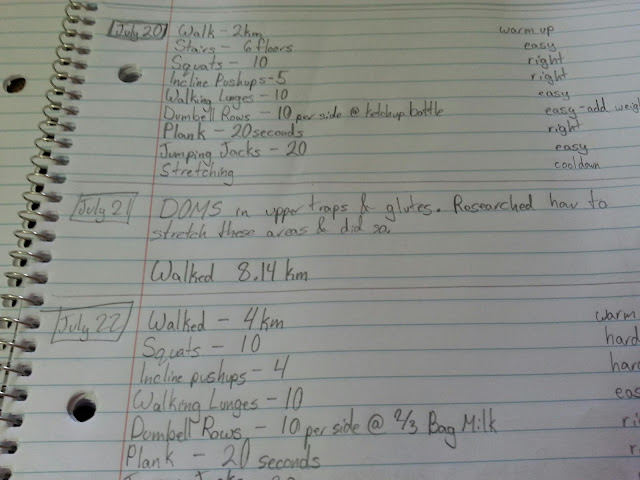 July 20 Walk - 2km warm up
Stairs - 6 floors easy
Squats - 10 right
Incline Pushups - 5 right
Walking Lunges - 10 easy
Dumbell Rows - 10 per side @ ketchup bottle easy - add weig
Plank - 20 seconds right
Jumping Jacks - 20 easy
Stretching cooldown
July 21 DOMS in upper traps & glutes. Researched how to
stretch these areas & did so.
Walked 8.14 km
July 22 Walked - 4km warm
Squats - 10 hard
Incline pushups - 4 hard
Walking Lunges - 10 eas
Dumbell Rows - 10 per side @ 2/3 Bag Milk ri
Plank - 20 seconds r